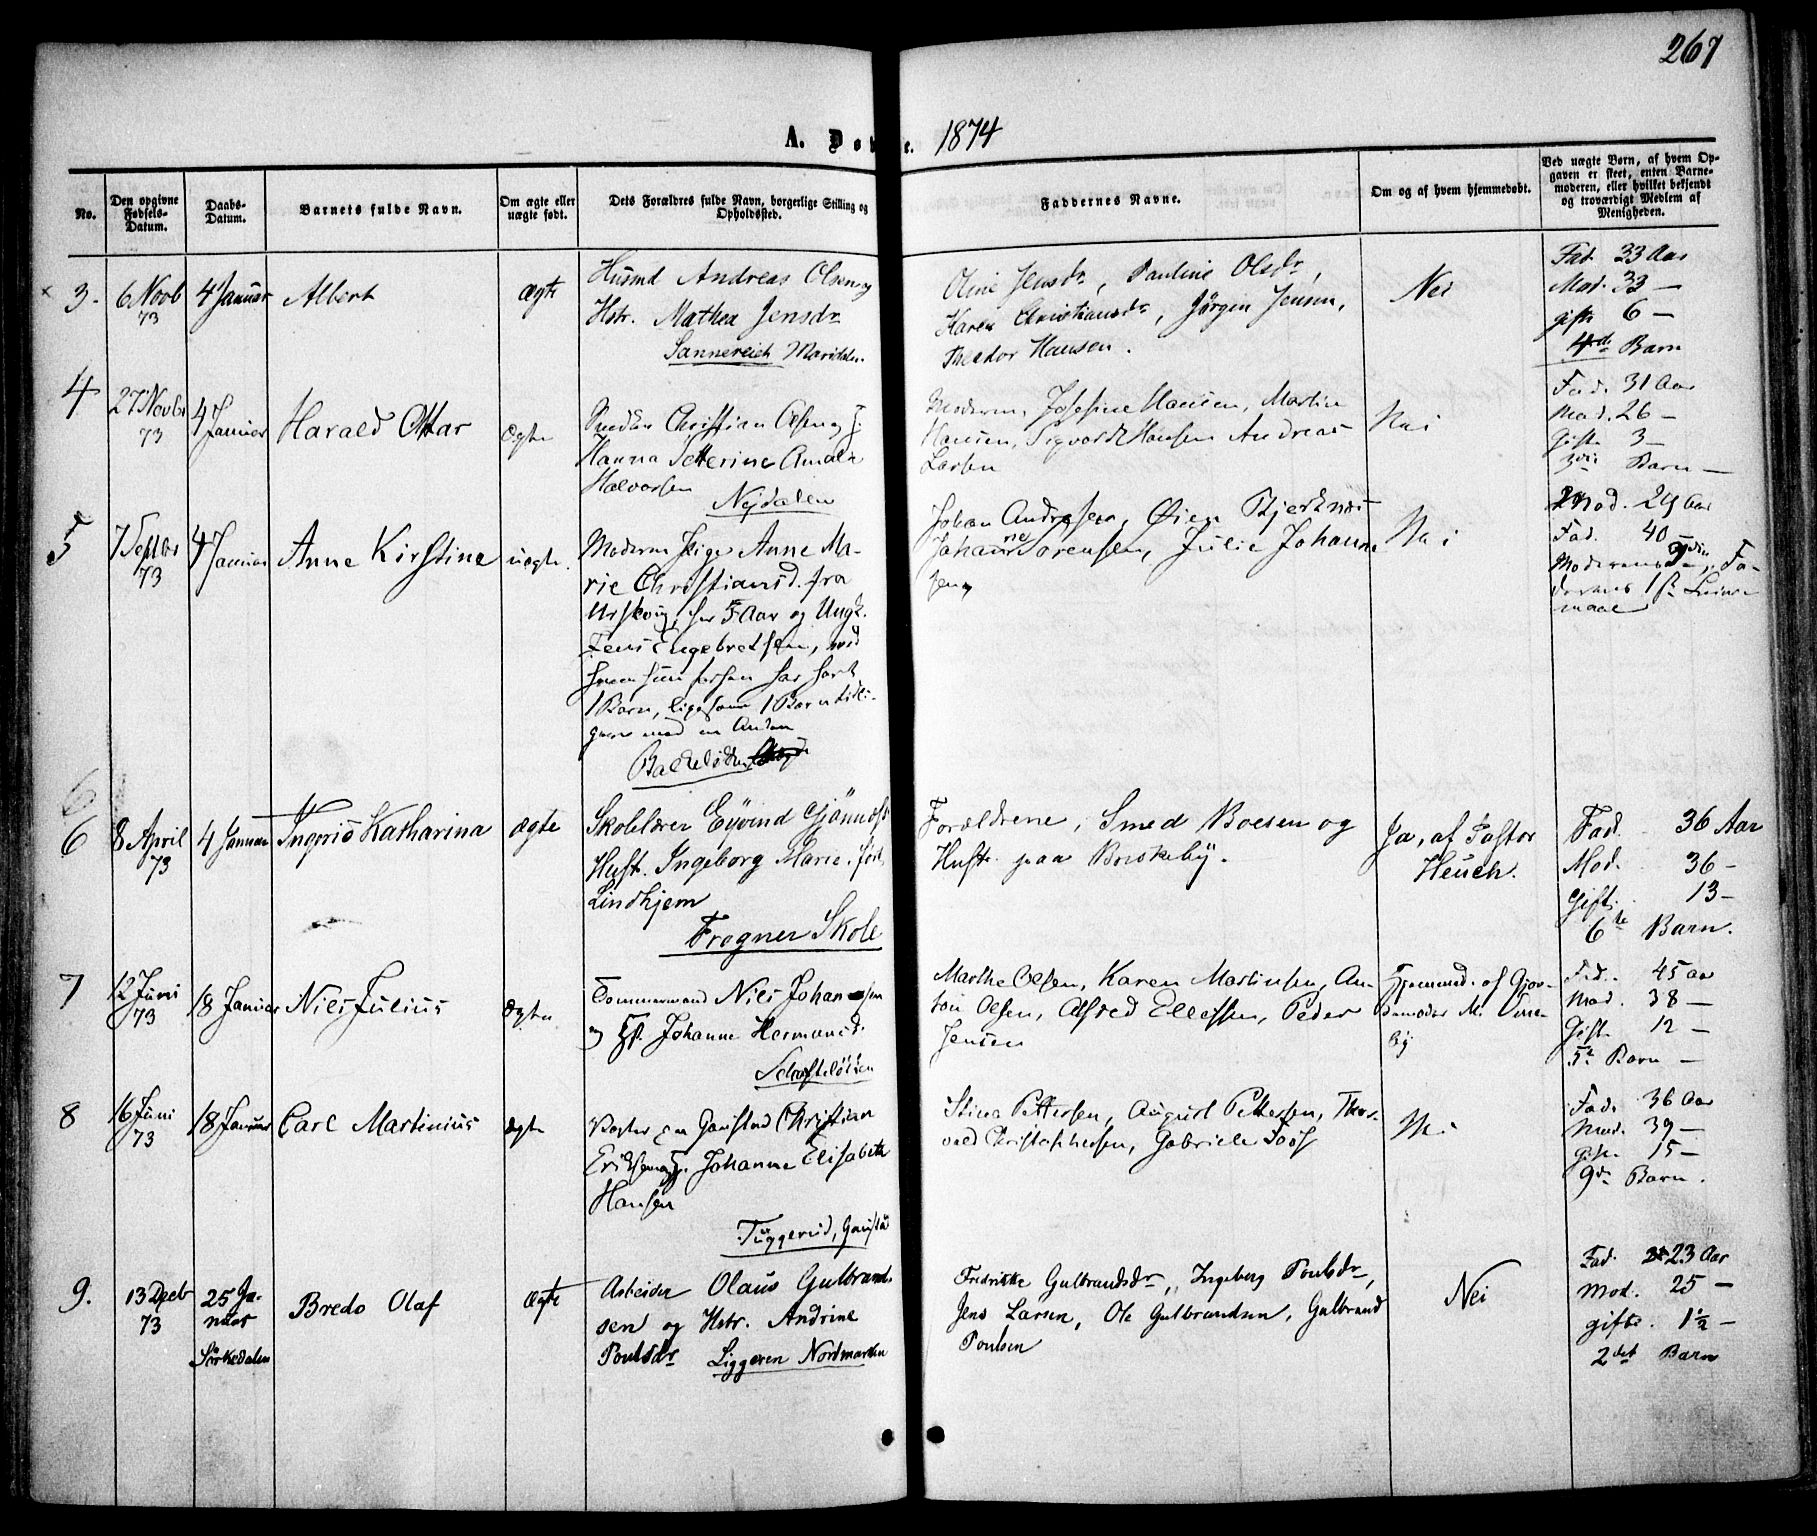 267
A. Dø e. 1874
No.
Den opgivne
Fødsels-
Datum.
Daabs-
Datum.
Barnets fulde Navn.
Om ægte eller
uægte født.
Dets Forældres fulde Navn, borgerlige Stilling og
Opholdssted.
Faddernes Navne.
Om og af hvem hjemmedøbt.
Ved uægte Børn, af hvem Op-
gaven er skeet, enten Barne-
moderen, eller hvilket bekjendt
og troværdigt Medlem af
Menigheden.
x 3.
6 Novb
73
4 Januar
Albert
ægte
Husmd Andreas Olsen og
Hstr. Mathea Jensdr
Sannereich Maridalen.
Oline Jensdr, Pauline Olsdr,
Karen Christiansdr, Jørgen Jensen,
Theodor Hansen.
Nei
Fad. 33 Aar
Mod. 33 —
gifte 6 —
4de Barn
4
27 Novbr
73
4
Januar
Harald Ottar
ægte
Christian Olsen og
Hanna Petterine Amalie
Halvorsen
Nejdalen
Moderen, Josefine Hansen, Martin
Hansen, Sigvardt Hansen Andreas
Larsen
Nei
Fad. 31 Aar
Mod. 26 —
Gift. 3 —
3die Barn —
5
7 Septbr
73
4 Januar
Anne Kirstine
uægte.
Moderen Pige Anne Ma-
rie Christiansd. fra
Urskoug, her 5 Aar og Ungk.
Jens Engebretsen, med
hvem hun forhen har havt
1 Barn, ligesom 1 Barn tidli-
gere med en Anden
Bakkeløkken
Johan Andersen, Øien Bjerknes
Johanne Sørensen, Julie Johanne-
sen
Nei
Mod. 29 Aar
Fad. 40 —
Moderens 3die, Fa-
derens 1ste Leier-
maal
6
6
8 April
73
4 Januar
Ingrid Katharina
ægte
Skolelærer Eyvind Gjønnes
Hust. Ingeborg Marie, født
Lindhjem
Frogner Skole
Forældrene, Smed Boesen og
Hustr. paa Briskeby.
Ja, af Pastor
Heuch.
Fad. 36 Aar
Mod. 36 —
Gift. 13 —
6te Barn.
7
12 Juni
73
18 Januar
Nils Julius
ægte
Tømmermand Nils Johansen
og H. Johanne Hermansd.
Schafteløkken
Marthe Olsen, Karen Martinsen, An-
ton Olsen, Alfred Ellefsen, Peder
Jensen
Hjemmed. af Gjor-
demoder M.
by
Fad. 45 Aar
Mod. 38 —
Gift. 12 —
5te Barn —
8
16 Juni
73
18 Januar
Carl Martinius
ægte
Vogter paa Gaustad Christian
Eriksen og H. Johanne Elisabeth
Hansen
Tüggerud, Gaustad
Stina Pettersen, August Pettersen, Thor-
vald Christophersen, Gabriele
Nei
Fad. 36 Aar
Mod. 39 —
Gift. 15 —
9de Barn.
9.
13 Decb
73
25 Ja-
nuar
Sørkedalen
Bredo Olaf
ægte
Arbeider Olaus Gulbrand-
sen og Hstr. Andrine
Poulsdr Liggeren Nordmarken
Fredrikke Gulbrandsdr, Ingeborg Poulsdr,
Jens Larsen, Ole Gulbrandsen, Gulbrand
Poulsen
Nei
Fad. 23 Aar
Mod. 25 —
gifte. 1½ —
2det Barn